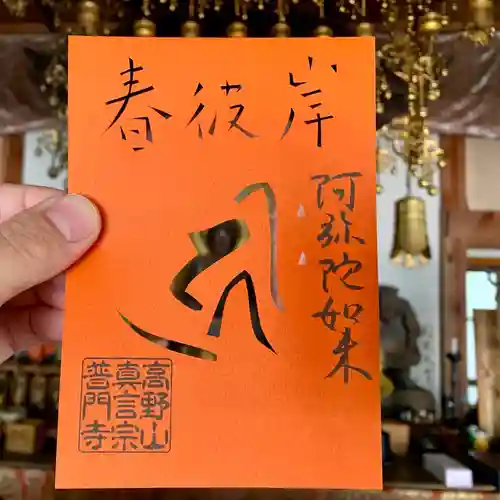 春彼岸
阿弥陀如来
高野山
真言宗
普門寺